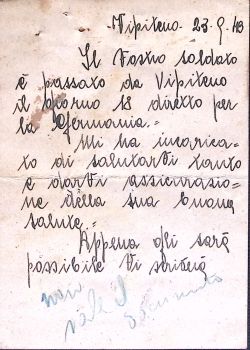 Vipiteno - 23-9-43
Il Vostro soldato
è passato da Vipiteno
il giorno 18 diretto per
la Germania.=
Mi ha incarica-
to di salutarVi tanto
e darVi assicurazio-
ne della sua buona
salute.=
Appena gli sarà
possibile Vi scriverà
non
vale il